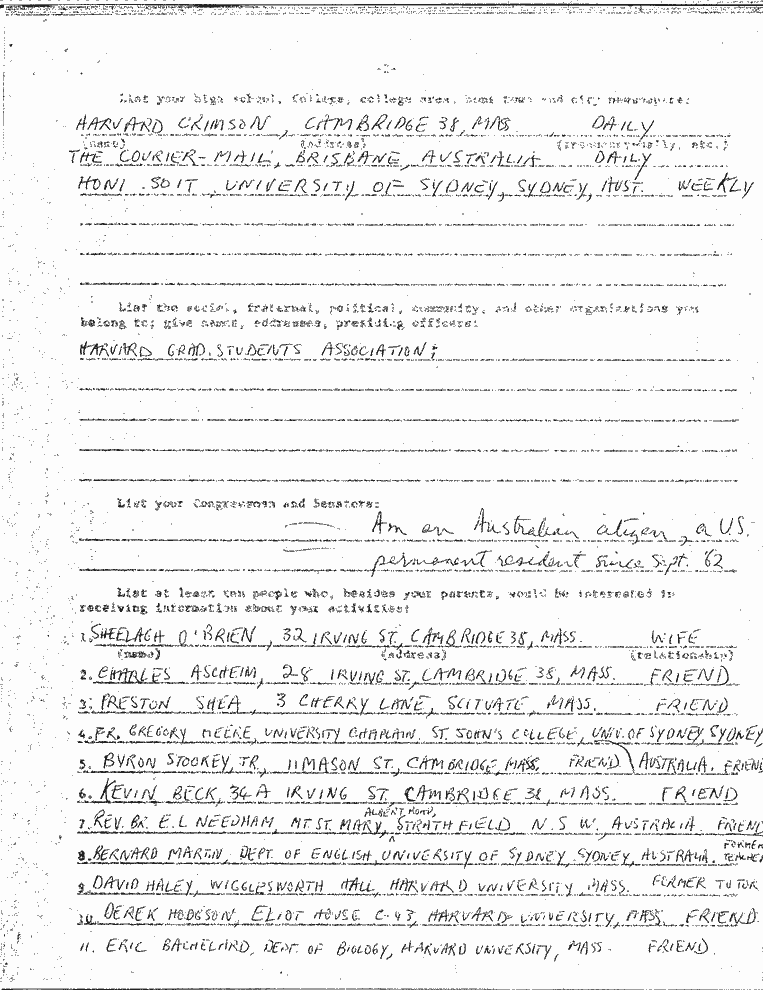 -2-
List your high school, college, college area, home town and city newspapers:
HARVARD CRIMSON, CAMBRIDGE 38, MASS DAILY
(name) (address) (frequency-daily, etc.)
THE COURIER-MAIL, BRISBANE, AUSTRALIA DAILY
HONI SOIT, UNIVERSITY OF SYDNEY, SYDNEY, AUST. WEEKLY
List the social, fraternal, political, community, and other organizations you
belong to; give names, addresses, presiding officers:
HARVARD GRAD. STUDENTS ASSOCIATION;
List your Congressmen and Senators:
Am an Australian citizen, a US.
permanent resident since Sept. '62
List at least ten people who, besides your parents, would be interested in
receiving information about your activities:
1. SHEELAGH O'BRIEN, 32 IRVING ST, CAMBRIDGE 38, MASS. WIFE
(name) (address) (relationship)
2. CHARLES ASCHEIM, 28 IRVING ST, CAMBRIDGE 38, MASS. FRIEND
3. PRESTON SHEA, 3 CHERRY LANE, SCITUATE, MASS. FRIEND
4. FR. GREGORY MEERE, UNIVERSITY CHAPLAIN. ST. JOHN'S COLLEGE, UNIV. OF SYDNEY, SYDNEY
5. BYRON STOOKEY, JR, 11 MASON ST, CAMBRIDGE, MASS. FRIEND AUSTRALIA. FRIEND
6. KEVIN BECK, 34A IRVING ST, CAMBRIDGE 38, MASS. FRIEND
ALBERT ROAD,
7. REV. BR. E.L NEEDHAM, MT ST. MARY, STRATHFIELD N.S W. AUSTRALIA. FRIEND
8. BERNARD MARTIN, DEPT. OF ENGLISH, UNIVERSITY OF SYDNEY, SYDNEY, AUSTRALIA. FORMER TEACHER
9. DAVID HALEY, WIGGLESWORTH HALL, HARVARD UNIVERSITY, MASS. FORMER TUTOR
10. DEREK HODGSON, ELIOT HOUSE C-43, HARVARD UNIVERSITY, MASS. FRIEND.
11. ERIC BACHELARD, DEPT. OF BIOLOGY, HARVARD UNIVERSITY, MASS. FRIEND.